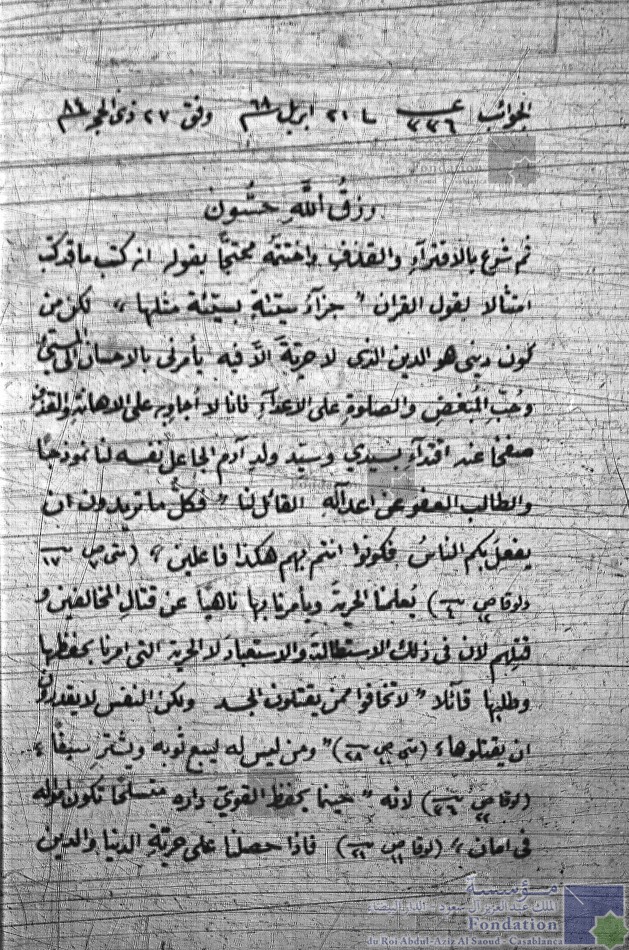 الجوائب عـ ٣٣٦ ـا ٢١ ابريل ٦٨ وفق ٢٧ ذى الحجه
رزقُ اللَّه حسُّون
ثم شرع بالافتراءِ والقذفِ واختتمَه محتجاً بقوله انه كتب ما قد كتب
امتثالا لقول القران " جزآءُ سيّئةٍ بسيّئة مثلها " لكن من
كون دينى هو الدين الذى لا حريّةَ الّا فيه يأمرنى بالاحسان الى المسىءِ
وحُبِّ المُبغض والصلوة على الاعدآءِ فانا لا أجاوبه على الاهانة والقذف
صفحًا عنه اقتدآءً بسيدي وسيّد ولدِ آدم الجاعل نفسه لنا نموذجًا
والطالب العفو عن اعدآئه القائل لنا " فكلُّ ما تريدون ان
يفعلَ بكم الناسُ فكونوا انتم بهم هكذا فاعلين " (متى ص ٧ ١٢
ولوقا ص ٦) يُعلمنا الحرية ويأمرنا بها ناهيًا عن قتالِ المخالفين و
قتلِهم لان فى ذلك الاستطالةَ والاستعبادَ لا الحرية التى امرنا بحفظها
وطلبها قائلا " لا تخافوا ممن يقتلون الجسد ولكن النفس لا يقدرون
ان يقتلوها " (متى ص ٢٨) " ومن ليس له ليبع ثوبه ويشترِ سيفًا "
(لوقا ص ٢٢ ٣٦) لانه " حينما يحفظ القوىّ داره متسلحًا تكون امواله
فى امان " (لوقا ص ١١ ٢١) فاذا حصلنا على حريّةِ الدنيا والدين
مؤسسة
الملك عبد العزيز آل سعود - الدار البيضاء
Fondation
du Roi Abdul-Aziz Al Saoud - Casablanca